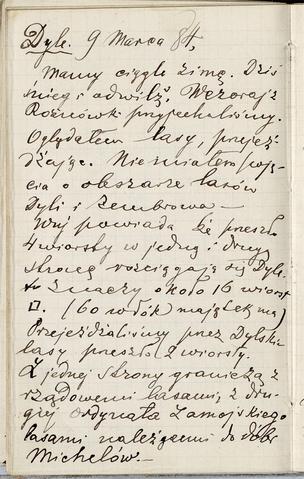 Dyle. 9 Marca 84,
Mamy ciągle zimę. Dziś
śnieg i odwilż. Wczoraj z
Rozniówki przyjechaliśmy.
Oglądałem lasy, przejeż-
dżając. Nie miałem poję-
cia o obszarze lasów
Dyli i Zembrowa —
Wuj powiada że przeszło
4 wiorsty w jedną i drugą
stronę rozciągają się Dyle.
Znaczy około 16 wiorst
□. (60 włók) mają
Przejeżdżaliśmy przez Dylskie
lasy przeszło 2 wiorsty.
Z jednej strony graniczą z
rządowemi lasami, z dru-
giej Ordynata Zamojskiego
lasami należącemi do dóbr
Michelów. —